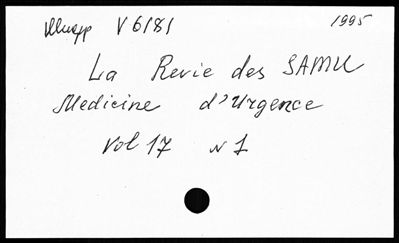 Шифр V 6181 1995
La Revie des SAMU
Medicine d'Urgence
Vol 17 N 1